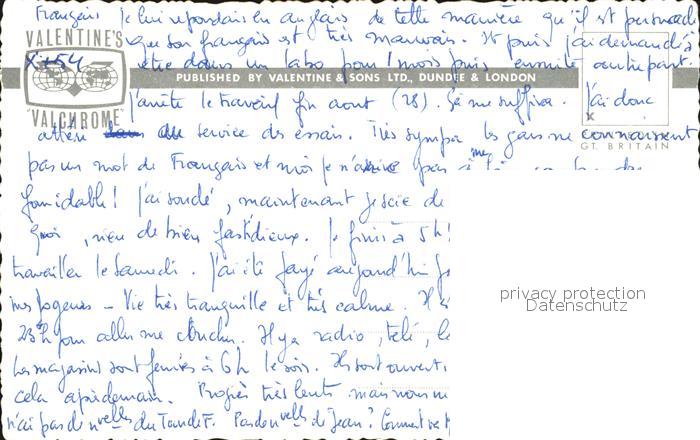 Français je lui répondais en anglais de telle manière qu'il est persuadé
VALENTINE'S
que son français est très mauvais. Et puis j'ai demandé à
être dans un labo pour 1 mois puis ensuite autre part.
PUBLISHED BY VALENTINE & SONS LTD., DUNDEE & LONDON
j'arrête le travail fin aout (28). Ça me suffira. J'ai donc
"VALCHROME"
au service des essais. Très sympa les gars ne connaissent
GT. BRITAIN
pas un mot de Français et moi je n' pas à
formidable! j'ai soudé, maintenant je scie de
quoi, rien de bien fastidieux. Je finis à 5h
travailler le Samedi. J'ai été payé aujourd'hui
privacy protection
Datenschutz
Vie très tranquille et très calme.
23h pour aller me coucher. Il y a radio, télé,
Les magasins sont fermés à 6h le soir. Ils sont ouverts
cela après demain. Progrès très lents mais nous
n'ai pas de nvelles du Tour de F. Pas de nvelles de Jean? Comment va